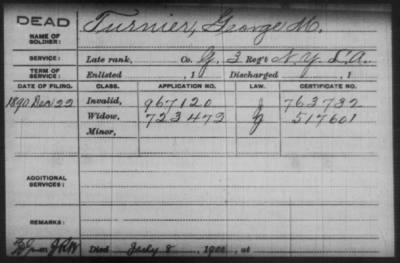 DEAD
NAME OF SOLDIER: Turnier, George M.
SERVICE: Late rank, Co. G, 3 Reg't N.Y. L.A.
TERM OF SERVICE: Enlisted , 1 Discharged , 1
DATE OF FILING. CLASS. APPLICATION NO. LAW. CERTIFICATE NO.
1890 Dec 22 Invalid, 967120 J 763782
Widow, 723472 517601
Minor,
ADDITIONAL SERVICES:
REMARKS:
Died July 8, 1900, at